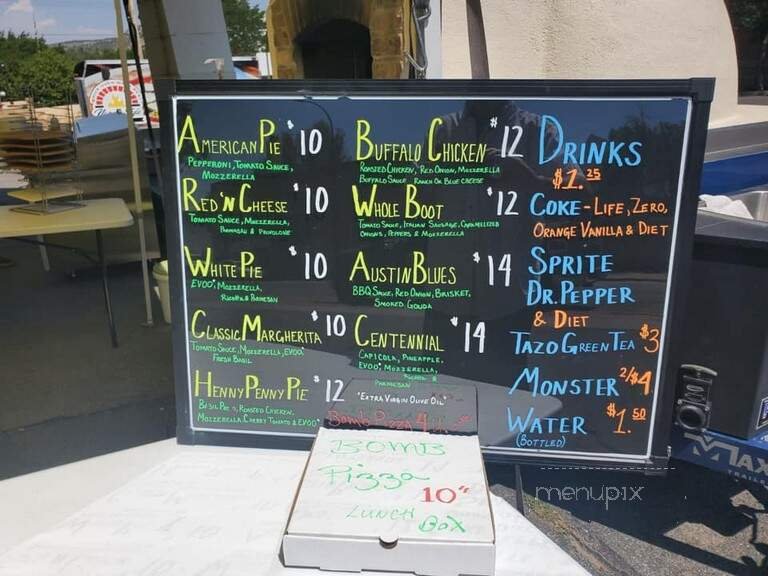 American Pie $10
Pepperoni, Tomato Sauce,
Mozzerella
Red 'N Cheese $10
Tomato Sauce, Mozzerella,
Parmesan & Provolone
White Pie $10
EVOO, Mozzerella,
Ricotta & Parmesan
Classic Margherita $10
Tomato Sauce, Mozzerella, EVOO
Fresh Basil
Henny Penny Pie $12
Basil Pesto, Roasted Chicken,
Mozzerella, Cherry Tomato & EVOO
Buffalo Chicken $12
Roasted Chicken, Red Onion, Mozzerella
Buffalo Sauce Ranch or Blue Cheese
Whole Boot $12
Tomato Sauce, Italian Sausage, Caramelized
Onions, Peppers & Mozzerella
Austin Blues $14
BBQ Sauce, Red Onion, Brisket,
Smoked Gouda
Centennial $14
Capicola, Pineapple,
EVOO, Mozzerella,
Ricotta &
Parmesan
"Extra Virgin Olive Oil"
Bomb Pizza 4
Drinks
$1.25
Coke - Life, Zero,
Orange Vanilla & Diet
Sprite
Dr. Pepper
& Diet
Tazo Green Tea $3
Monster 2/$4
Water $1.50
(Bottled)
BOMB
Pizza
10"
LUNCH
Box
MAX
TRAIL
menupix